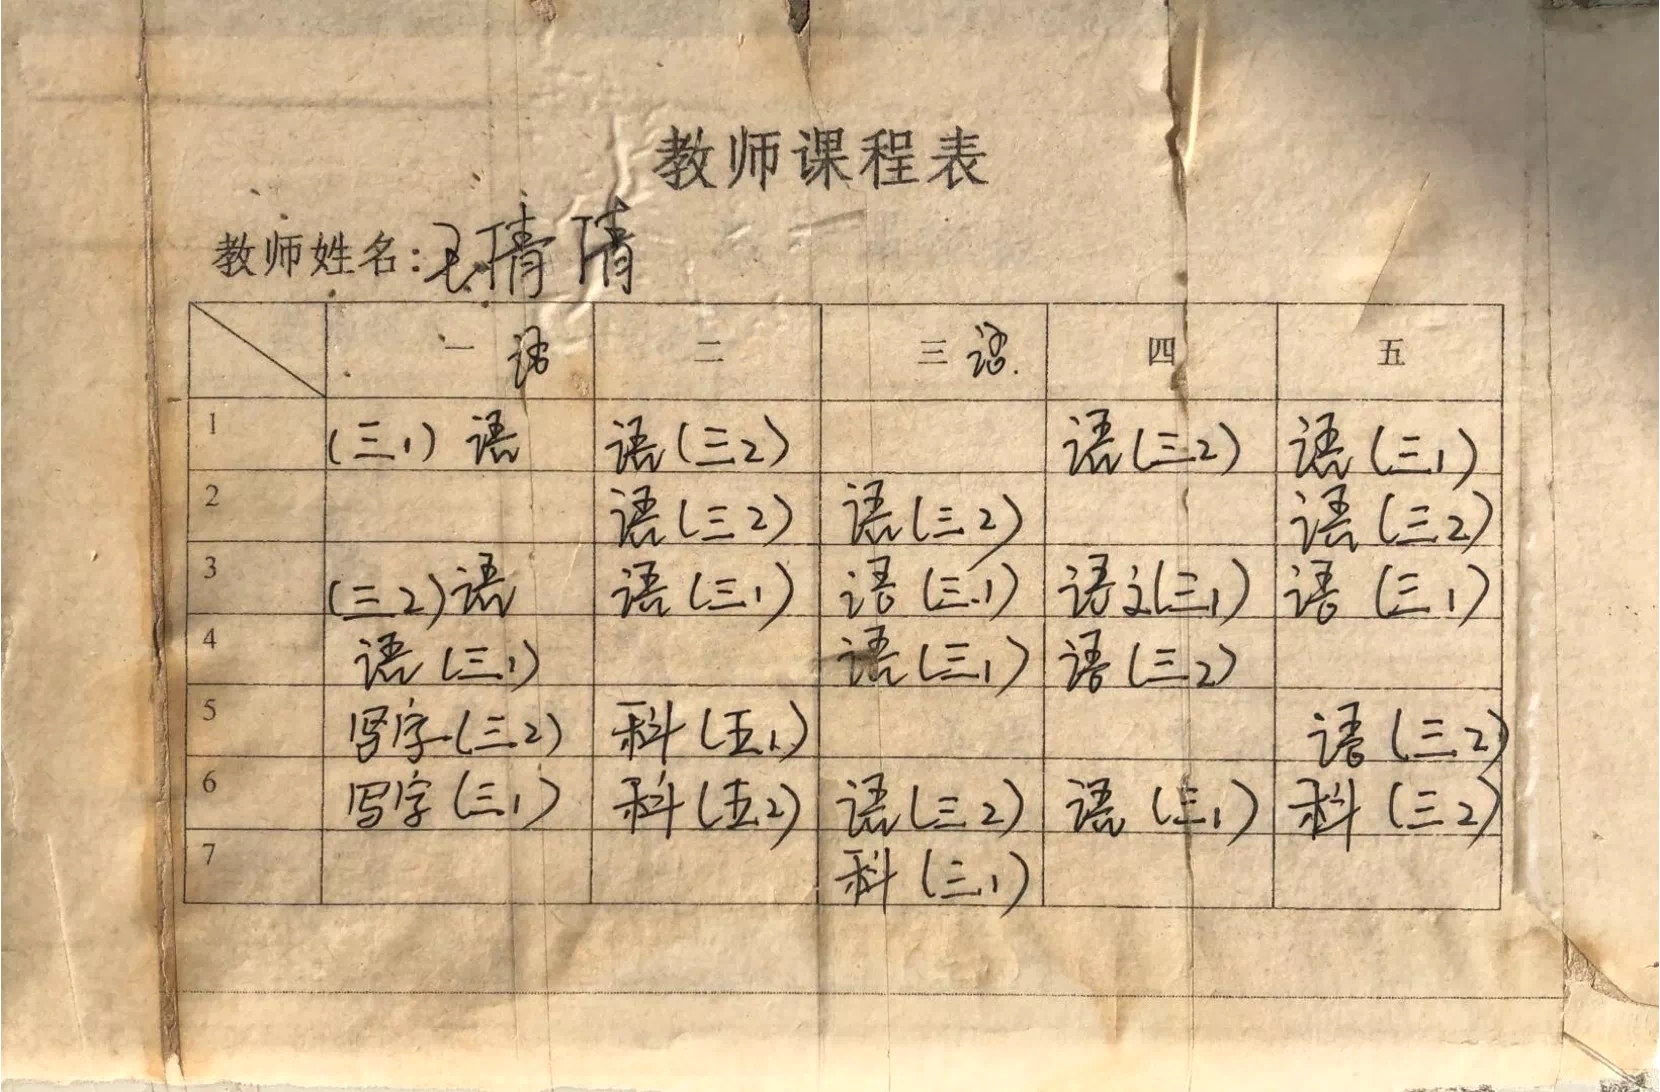 教师课程表
教师姓名:毛倩倩
一 语 二 三 语. 四 五
1 (三1) 语 语(三2) 语(三2) 语(三1)
2 语(三2) 语(三2) 语(三2)
3 (三2)语 语(三1) 语(三1) 语文(三1) 语(三1)
4 语(三1) 语(三1) 语(三2)
5 写字(三2) 科(五1) 语(三2)
6 写字(三1) 科(五2) 语(三2) 语(三1) 科(三2)
7 科(三1)